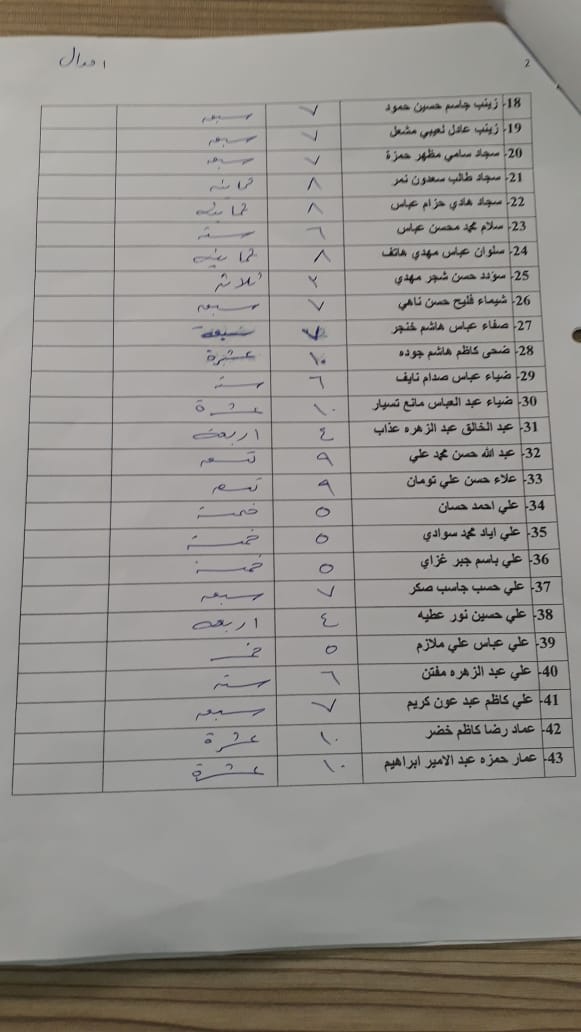 احوال
2
18- زينب جاسم حسين حمود ٧ سبعه
19- زينب عادل نعيبي مشعل ٧ سبعه
20- سجاد سامي مظهر حمزة ٧ سبعه
21- سجاد طالب سعدون نمر ٨ ثمانيه
22- سجاد هادي حزام عباس ٨ ثمانيه
23- سلام محمد محسن عباس ٦ ستة
24- سلوان عباس مهدي هاتف ٨ ثمانيه
25- سؤدد حسن شجر مهدي ٣ ثلاثة
26- شيماء فليح حسن ناهي ٧ سبعه
27- صفاء عباس هاشم خنجر ٧ سبعة
28- ضحى كاظم هاشم جوده ١٠ عشرة
29- ضياء عباس صدام نايف ٦ ستة
30- ضياء عبد العباس مانع تسيار ١٠ عشرة
31- عبد الخالق عبد الزهره عذاب ٤ اربعه
32- عبد الله حسن محمد علي ٩ تسعه
33- علاء حسن علي تومان ٩ تسعه
34- علي احمد حسان ٥ خمسة
35- علي اياد محمد سوادي ٥ خمسة
36- علي باسم جبر غزاي ٥ خمسة
37- علي حسب جاسب صكر ٧ سبعه
38- علي حسين نور عطيه ٤ اربعه
39- علي عباس علي ملازم ٥
40- علي عبد الزهره مفتن ٦ ستة
41- علي كاظم عبد عون كريم ٧ سبعه
42- عماد رضا كاظم خضر ١٠ عشرة
43- عمار حمزه عبد الامير ابراهيم ١٠ عشرة